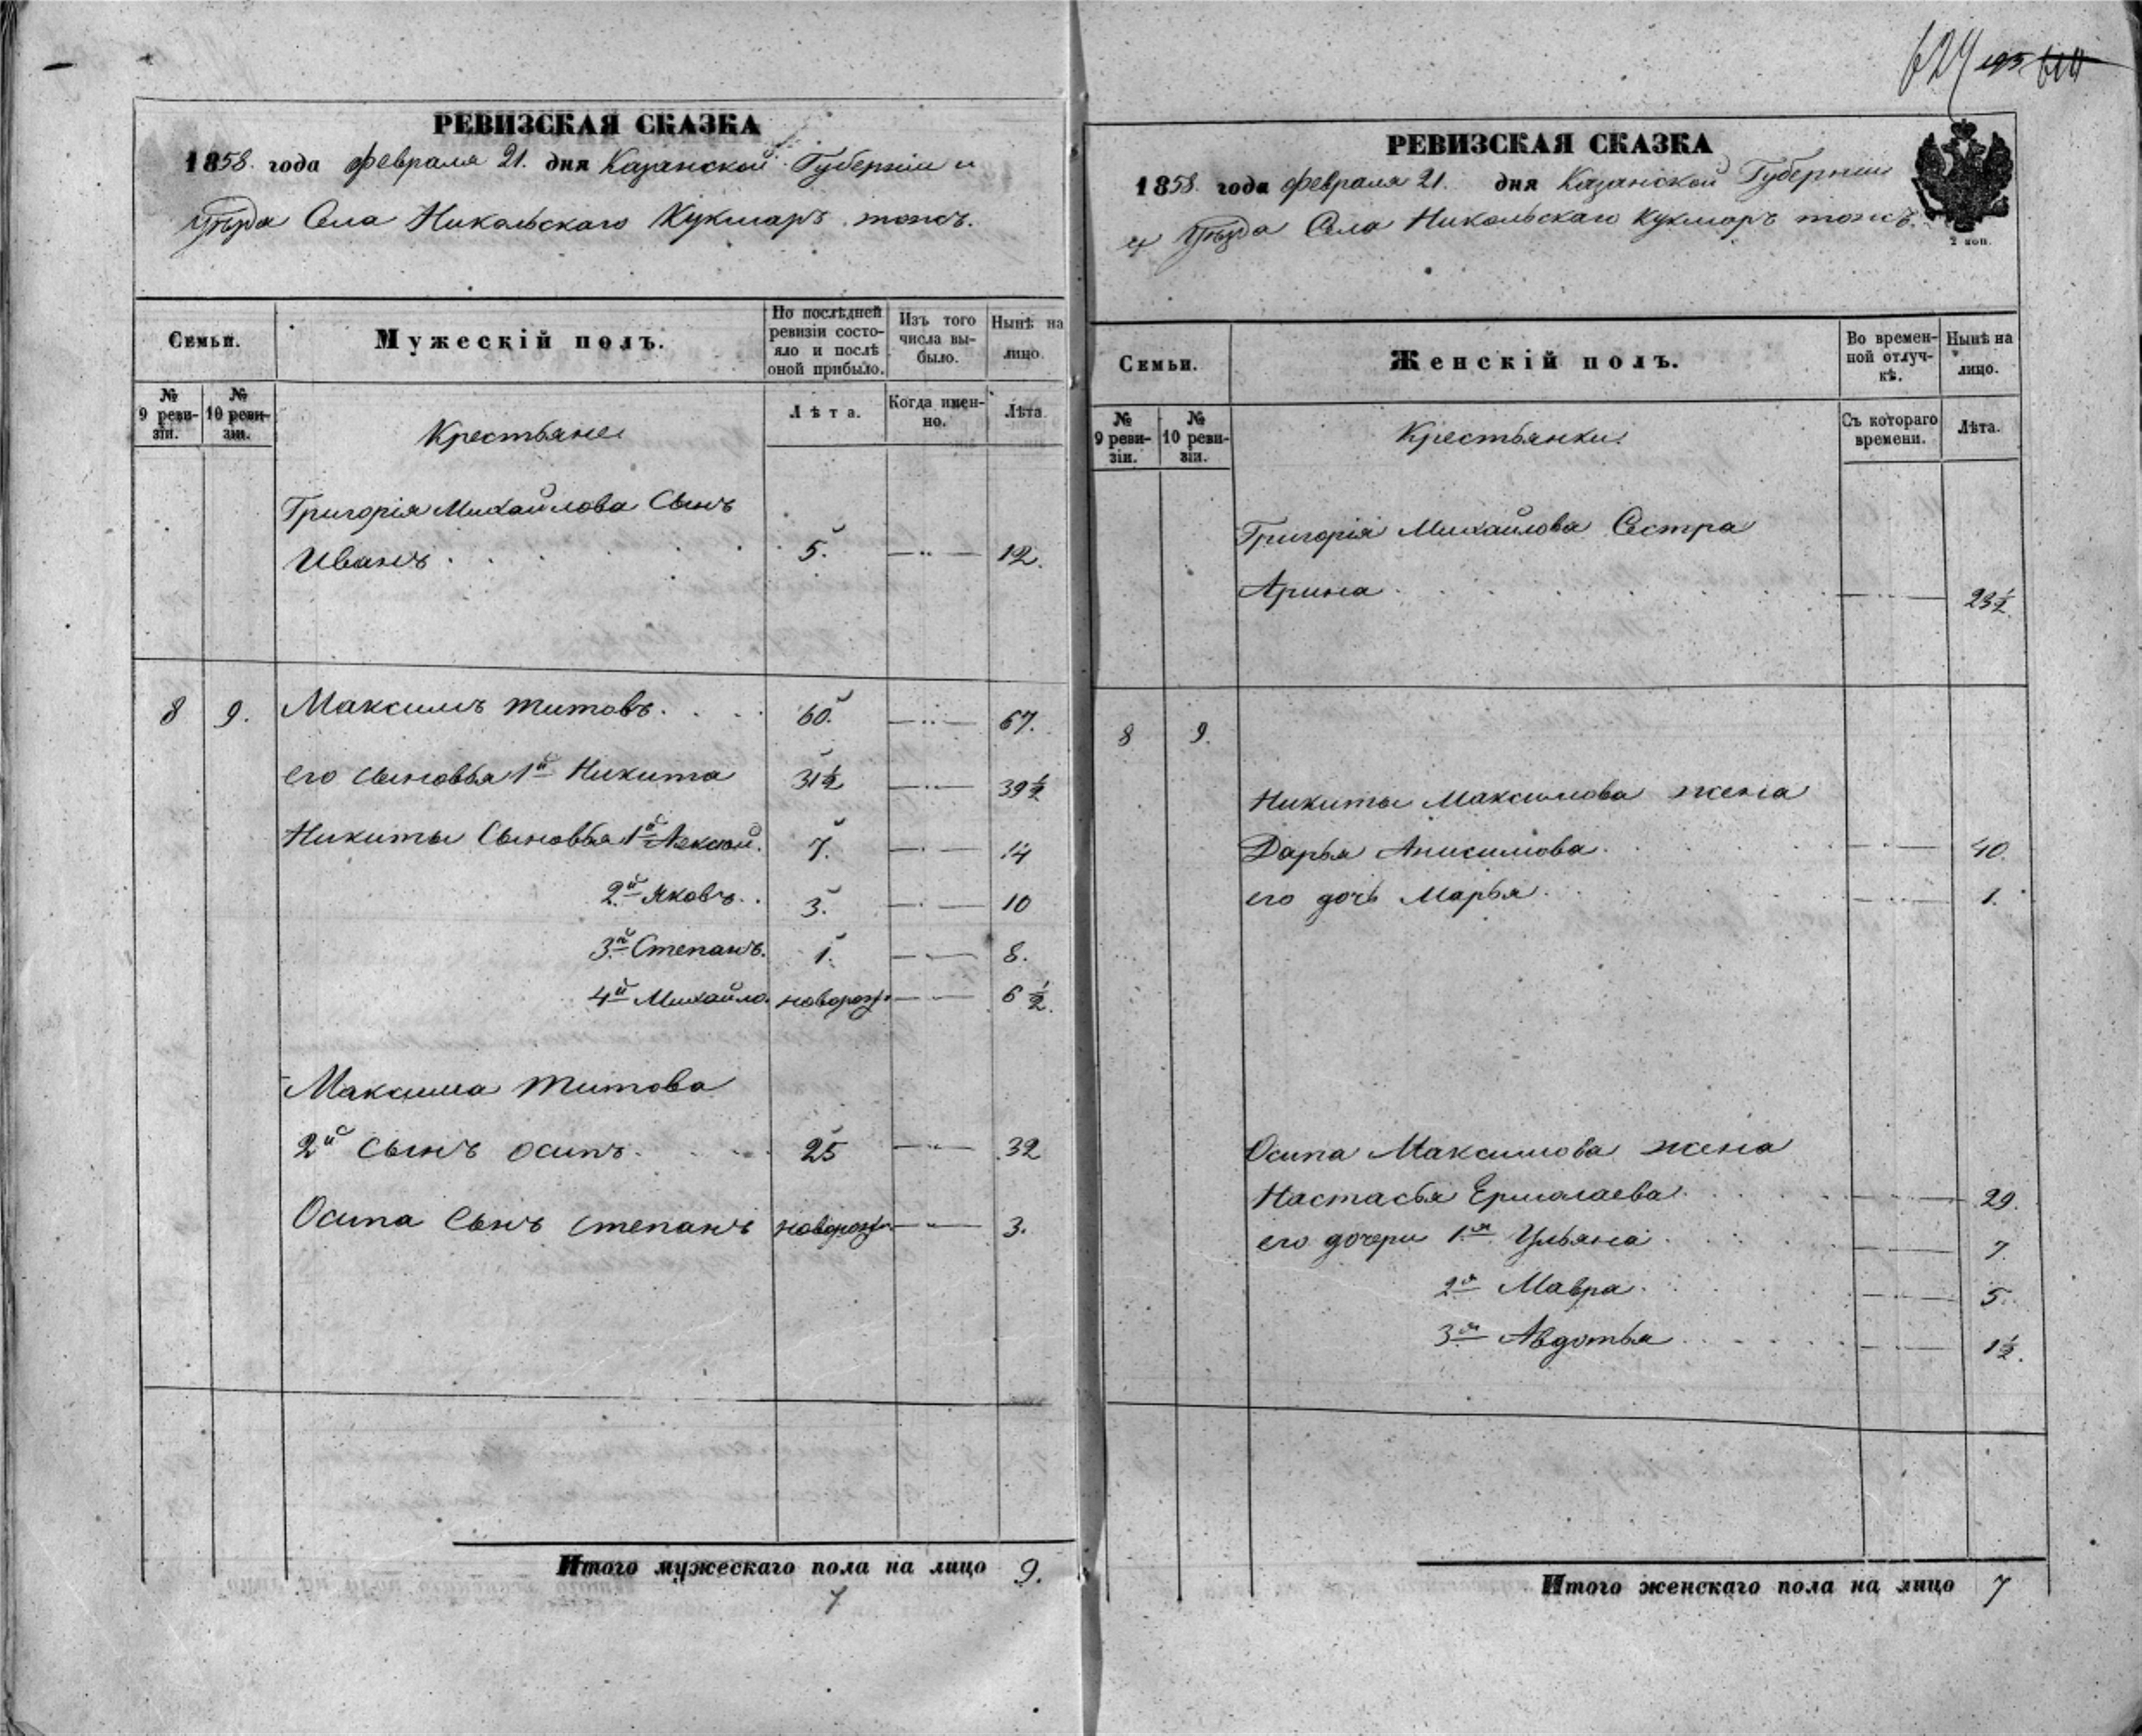 РЕВИЗСКАЯ СКАЗКА
1858. года февраля 21. дня Казанской Губерніи и
Уѣзда Села Никольскаго Кукморъ тожъ.
Семьи.
Мужескій полъ.
По послѣдней ревизіи состояло и послѣ оной прибыло.
Изъ того числа выбыло.
Нынѣ на лицо.
№ 9 ревизіи.
№ 10 ревизіи.
Крестьяне
Лѣта.
Когда именно.
Лѣта.
Григорія Михайлова Сынъ
Иванъ . . . . 5. — 12.
8 9. Максимъ Титовъ. . . . 60. — 67.
его сыновья 1й Никита 31½ — 39½
Никиты Сыновья 1й Алексѣй. 7. — 14
2й Яковъ. . 3. — 10
3й Степанъ. 1. — 8.
4й Михайло. новорож. — 6½.
Максима Титова
2й Сынъ Осипъ. . . . 25 — 32
Осипа Сынъ Степанъ новорож — 3.
Итого мужескаго пола на лицо 9.
7
624
РЕВИЗСКАЯ СКАЗКА
1858. года февраля 21. дня Казанской Губерніи
и Уѣзда Села Никольскаго Кукморъ тожъ.
2 коп.
Семьи.
Женскій полъ.
Во временной отлучкѣ.
Нынѣ на лицо.
№ 9 ревизіи.
№ 10 ревизіи.
Крестьянки.
Съ котораго времени.
Лѣта.
Григорія Михайлова Сестра
Арина . . . . — 23½.
8 9.
Никиты Максимова жена
Дарья Анисимова. . . . — 40.
его дочь Марья. . . . — 1.
Осипа Максимова жена
Настасья Ермолаева. . . . — 29.
его дочери 1я Ульяна . . . — 7.
2я Мавра. . . . — 5.
3я Авдотья . . . . — 1½.
Итого женскаго пола на лицо 7